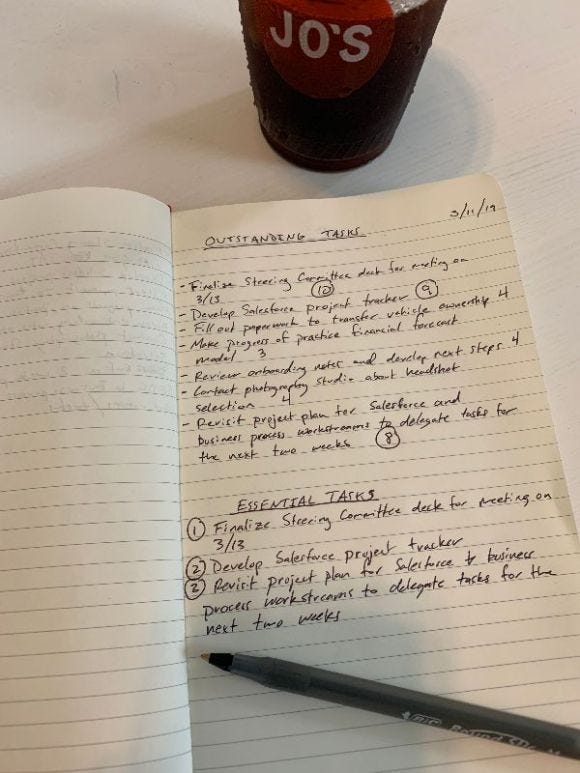 JO'S
3/11/19
OUTSTANDING TASKS
- Finalize Steering Committee deck for meeting on
3/13 (10)
- Develop Salesforce project tracker (9)
- Fill out paperwork to transfer vehicle ownership 4
- Make progress of practice financial forecast
model 3
- Review onboarding notes and develop next steps 4
- Contact photography studio about headshot
selection 4
- Revisit project plan for Salesforce and
business process workstreams to delegate tasks for
the next two weeks (8)
ESSENTIAL TASKS
(1) Finalize Steering Committee deck for meeting on
3/13
(2) Develop Salesforce project tracker
(2) Revisit project plan for Salesforce & business
process workstreams to delegate tasks for the
next two weeks
BIC Round Stic M